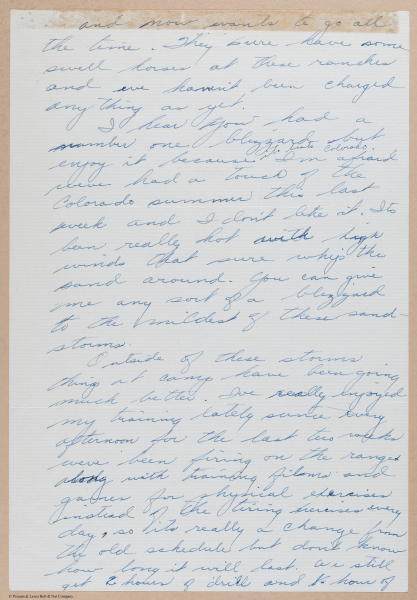 and now wants to go all
the time. They sure have some
swell horses at these ranches
and we haven't been charged
any thing as yet.
I hear you had a
number one blizzard but
enjoy it because I'm afraid
weve had a touch of the
Colorado summer this last
week and I don't like it. Its
been really hot with high
winds that sure whips the
sand around. You can give
me any sort of a blizzard
to the mildest of these sand-
storms.
Outside of these storms
things at camp have been going
much better. I've really enjoyed
my training lately since every
afternoon for the last two weeks
weve been firing on the ranges
along with training films and
games for physical exercises
instead of the tiring exercises every
day, so its really a change from
the old schedule but don't know
how long it will last. We still
get 2 hours of drill and ½ hour of